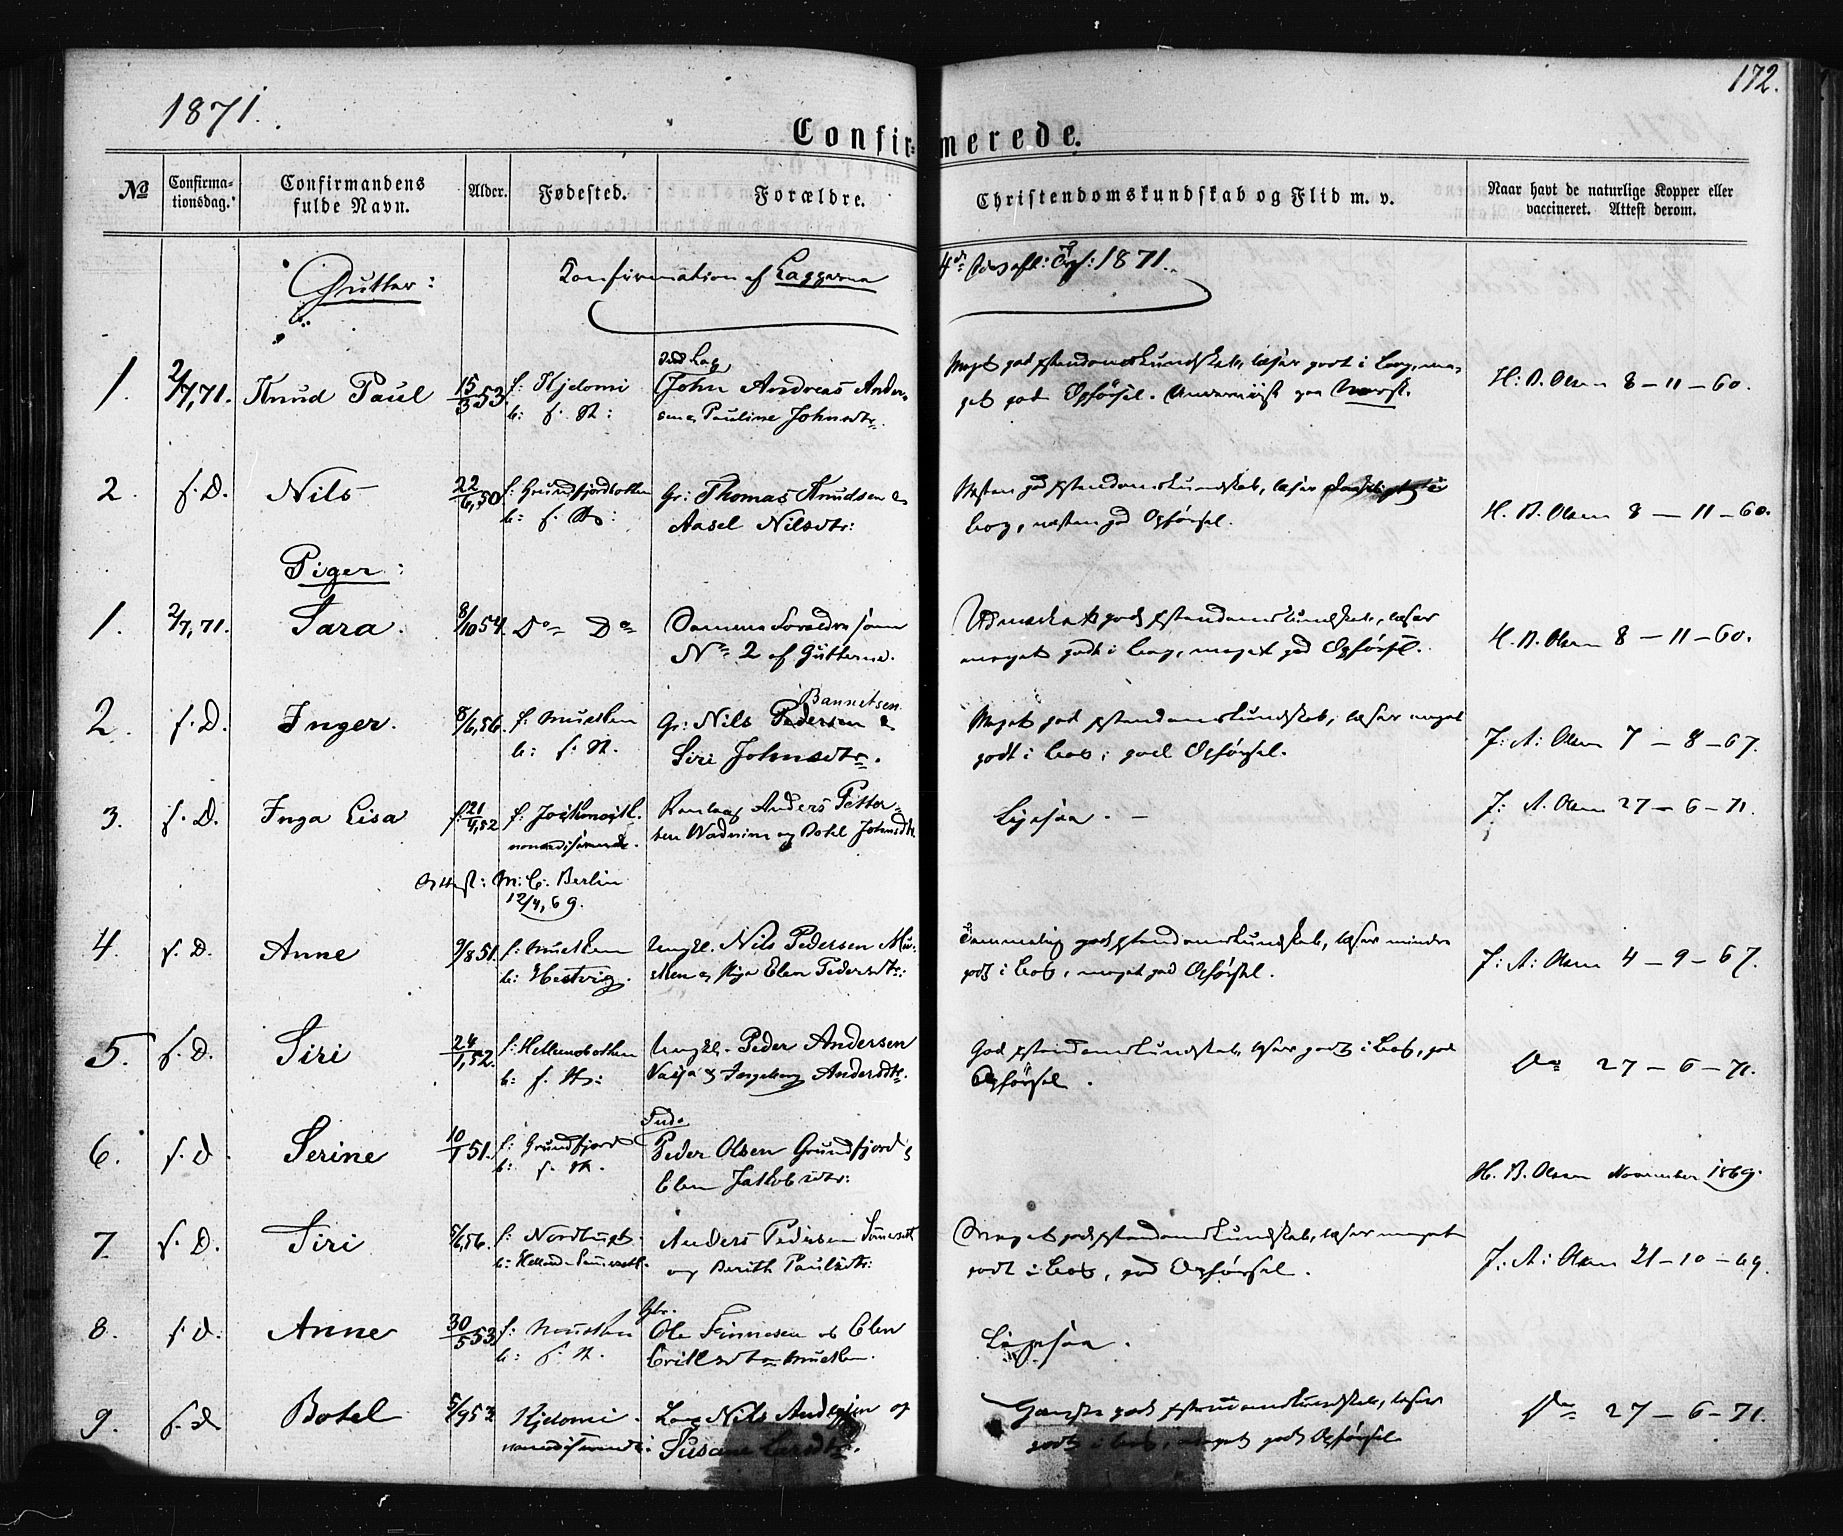 1871.
172.
Confirmerede.
No
Confirma-
tionsdag.
Confirmandens
fulde Navn.
Alder.
Fødested.
Forældre.
Christendomskundskab og Flid m. v.
Naar havt de naturlige Kopper eller
vaccineret. Attest derom.
Gutter:
Konfirmation af Lapperne
1871.
1. 2/7,71. Knud Paul 15/3 53. f: Kjelomi
b: f. St:
John Andreas Ander-
sen & Pauline Johnsdtr.
Meget god Kristendomskundskab, læser godt i Bog, me-
get god Opførsel. Underviist paa Norsk.
H. B. Olsen 8-11-60.
2. s. D. Nils 22/6,50 f: Grundfjordbotten
b: f. St:
Gr: Thomas Knudsen &
Aasel Nilsdtr:
Næsten god Kristendomskundskab, læser
Bog, næsten god Opførsel.
H. B. Olsen 8-11-60.
Piger:
1. 2/7,71. Sara. 8/10 54. Do Do
Samme Forældre som
No 2 af Gutterne.
Udmærket god Kristendomskundskab, læser
meget godt i Bog, meget god Opførsel.
H. B. Olsen 8-11-60.
2. s. D. Inger. 8/6,56. f: Musken
b: f. St.
Bannetsen
Gr: Nils Pedersen &
Siri Johnsdtr.
Meget god Kristendomskundskab, læser meget
godt i Bog, god Opførsel.
J: A: Olsen 7-8-67.
3. s. D. Inga Lisa 21/4,52
Anders Petter-
sen og Botel Johnsdtr
Ligesaa.
J: A. Olsen 27-6-71.
Attest: M. C. Berlin
12/4,69.
4. s. D. Anne 9/8 51. f: Musken
b: Hestvig.
Ungkl. Nils Pedersen Mu-
sken og Pige Elen Pedersdtr:
Temmelig god Kristendomskundskab, læser mindre
godt i Bog, meget god Opførsel.
J: A: Olsen 4-9-67.
5. s. D. Siri 24/1,52. f: Hellemobotten
b: f. St:
Ungkl. Peder Andersen
& Ingeborg Andersdtr.
God Kristendomskundskab, læser godt i Bog, god
Opførsel.
Do 27-6-71.
6. s. D. Serine 10/1 51. f: Grundfjord
b: f. St.
Peder Olsen Grundfjord &
Elen Jakobsdtr:
H. B. Olsen November 1869.
7. s. D. Siri 5/6,56. f: Nordbugt.
Anders Pedersen
og Berith Paulsdtr:
Meget god Kristendomskundskab, læser meget
godt i Bog, god Opførsel.
J: A: Olsen 21-10-69.
8. s. D. Anne 30/5 53 f: Musken
b: f. St.
Gbr.
Ole Finnesen og Elen
Musken.
Ligesaa.
9. s. D Botel 5/9 53 Kjelomi.
Nils Andersen og
Susane
Ganske god Kristendomskundskab, læser
godt i Bog, meget god Opførsel
Do 27-6-71.